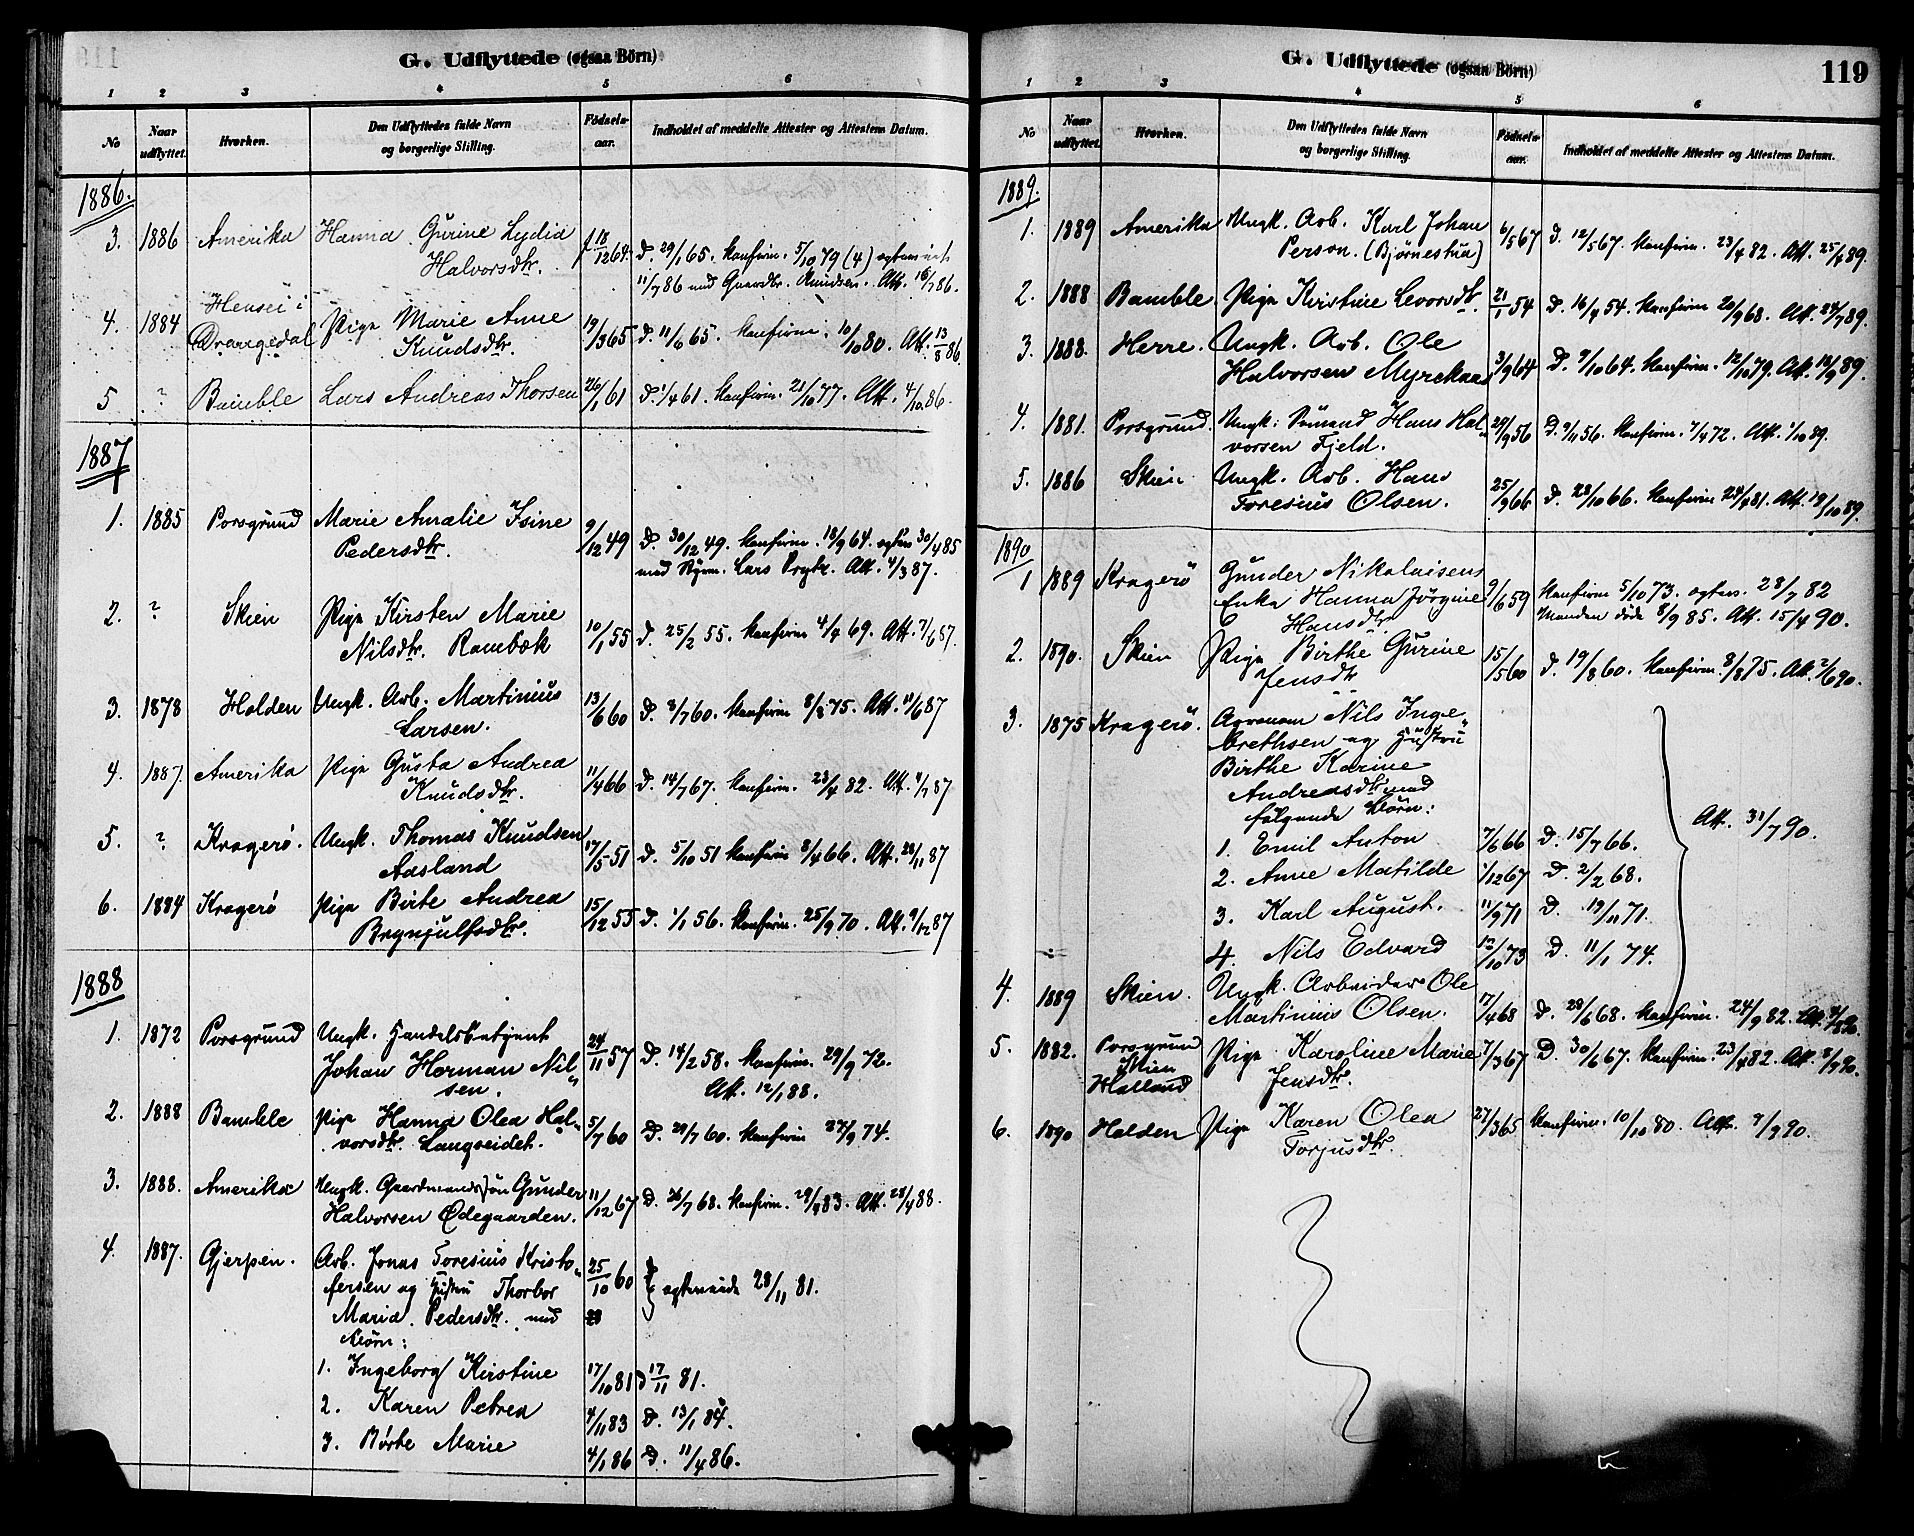 G. Udflyttede (ogsaa Börn)
1 2 3 4 5 6
No Naar udflyttet. Hvorhen. Den Udflyttedes fulde Navn og borgerlige Stilling. Fødsels-aar. Indholdet af meddelte Attester og Attestens Datum.
1886.
3. 1886 Amerika Hanna Gurine Lydia 18/12 64. D. 29/1 65. Konfirm. 5/10 79 (4) egteviet
Halvorsdtr. 11/7 86 med Knudsen. Att. 16/7 86.
4. 1884 Hensei i Drangedal Pige Marie Anne 19/3 65 D. 11/6 65. Konfirm. 10/10 80. Att. 13/8 86
Knudsdtr.
5 ? Bamble Lars Andreas Thorsen 26/1 61 D. 1/4 61. Konfirm. 21/10 77. Att. 4/10 86.
1887
1. 1885 Porsgrund Marie Amalie Isine 9/12 49 D. 30/12 49. Konfirm. 18/9 64. egtev 30/4 85
Pedersdtr. med Lars Att. 4/3 87.
2. ? Skien Pige Kirsten Marie 10/1 55 D. 25/2 55. Konfirm. 4/4 69. Att. 7/6 87.
Nilsdtr. Rambæk
3. 1878 Holden Ungk. Arb. Martinius 13/6 60 D. 8/7 60. Konfirm 8/8 75. Att. 11/6 87
Larsen.
4. 1887. Amerika Pige Gusta Andrea 11/4 66 D. 14/7 67. Konfirm. 23/4 82. Att. 4/7 87
Knudsdtr.
5. ? Kragerö. Ungk. Thomas Knudsen 17/5 51 D. 5/10 51 Konfirm. 8/4 66. Att. 23/11 87
Aasland
6. 1884 Kragerö Pige Birte Andrea 15/12 55 D. 1/1 56. Konfirm. 25/9 70. Att. 9/12 87
Brynjulfsdtr.
1888
1. 1872 Porsgrund Ungk. Handelsbetjent 24/11 57 D. 14/2 58. Konfirm. 29/9 72.
Johan Herman Nil-
sen. Att. 12/1 88.
2. 1888 Bamble Pige Hanna Olea Hal- 5/7 60 D. 29/7 60. Konfirm 27/9 74.
vorsdtr. Langseidet.
3. 1888. Amerika Ungk. Gaardmandssøn Gunder 11/12 67 D. 26/7 68. Konfirm. 29/4 83. Att. 28/4 88.
Halvorsen Ødegaarden.
4. 1887. Gjerpen. Arb. Jonas Toresius Kristo- 25/10 60
fersen og Hustru Thorbor egteviede 23/11 81.
Maria Pedersdtr. med
Börn:
1. Ingeborg Kirstine 17/10 81 D 17/11 81.
2. Karen Petrea 4/11 83 D. 13/1 84.
3. Børte Marie 4/1 86 D. 11/4 86.
G. Udflyttede (ogsaa Börn)
119
1 2 3 4 5 6
No Naar udflyttet. Hvorhen. Den Udflyttedes fulde Navn og borgerlige Stilling. Fødsels-aar. Indholdet af meddelte Attester og Attestens Datum.
1889.
1. 1889 Amerika Ungk. Arb. Karl Johan 6/5 67 D. 12/5 67. Konfirm. 23/4 82. Att. 25/4 89.
Person. (Bjørnestua)
2. 1888 Bamble Pige Kristine Levorsdtr. 21/1 54 D. 16/4 54. Konfirm 20/9 68. Att. 24/7 89.
3. 1888. Herre. Ungk. Arb. Ole
Halvorsen Myrekaas 3/9 64 D. 9/10 64. Konfirm. 12/10 79. Att. 18/9 89.
4. 1881. Porsgrund. Ungk. Sömand Hans Hal- 29/9 56 D. 9/11 56. Konfirm. 7/4 72. Att. 1/10 89.
vorsen Fjeld.
5. 1886 Skien Ungk. Arb. Hans 25/9 66 D. 28/10 66. Konfirm. 24/4 81. Att. 19/10 89.
Toresius Olsen.
1890
1 1889 Kragerö Gunder Nikolaisens
Enke Hanna Jørgine 9/6 59 Konfirm 5/10 73. egtev. 28/7 82
Hansdtr Manden döde 8/9 85. Att. 15/4 90.
2. 1890. Skien Pige Birthe Gurine 15/5 60 D. 19/8 60. Konfirm. 8/8 75. Att. 2/6 90.
Jensdtr
3. 1875 Kragerö. Agronom Nils Inge-
brethsen og Hustru
Birthe Karine
Andreasdtr med
følgende Börn: Att. 31/7 90.
1. Emil Anton 7/6 66 D. 15/7 66.
2. Anne Matilde 1/12 67 D. 2/2 68.
3. Karl August. 11/9 71 D. 19/11 71.
4. Nils Edvard 12/10 73 D. 11/1 74.
4. 1889 Skien. Ungk. Arbeider Ole
Martinius Olsen. 7/4 68 D. 28/6 68. Konfirm. 24/9 82. Att. 90.
5. 1882. Porsgrund Pige Karoline Marie 7/3 67 D. 30/6 67. Konfirm. 23/4 82. Att. 8/9 90.
Skien Jensdtr.
Holland
6. 1890 Holden Pige Karen Olea 27/3 65 Konfirm. 10/10 80. Att. 9/9 90.
Torjusdtr.